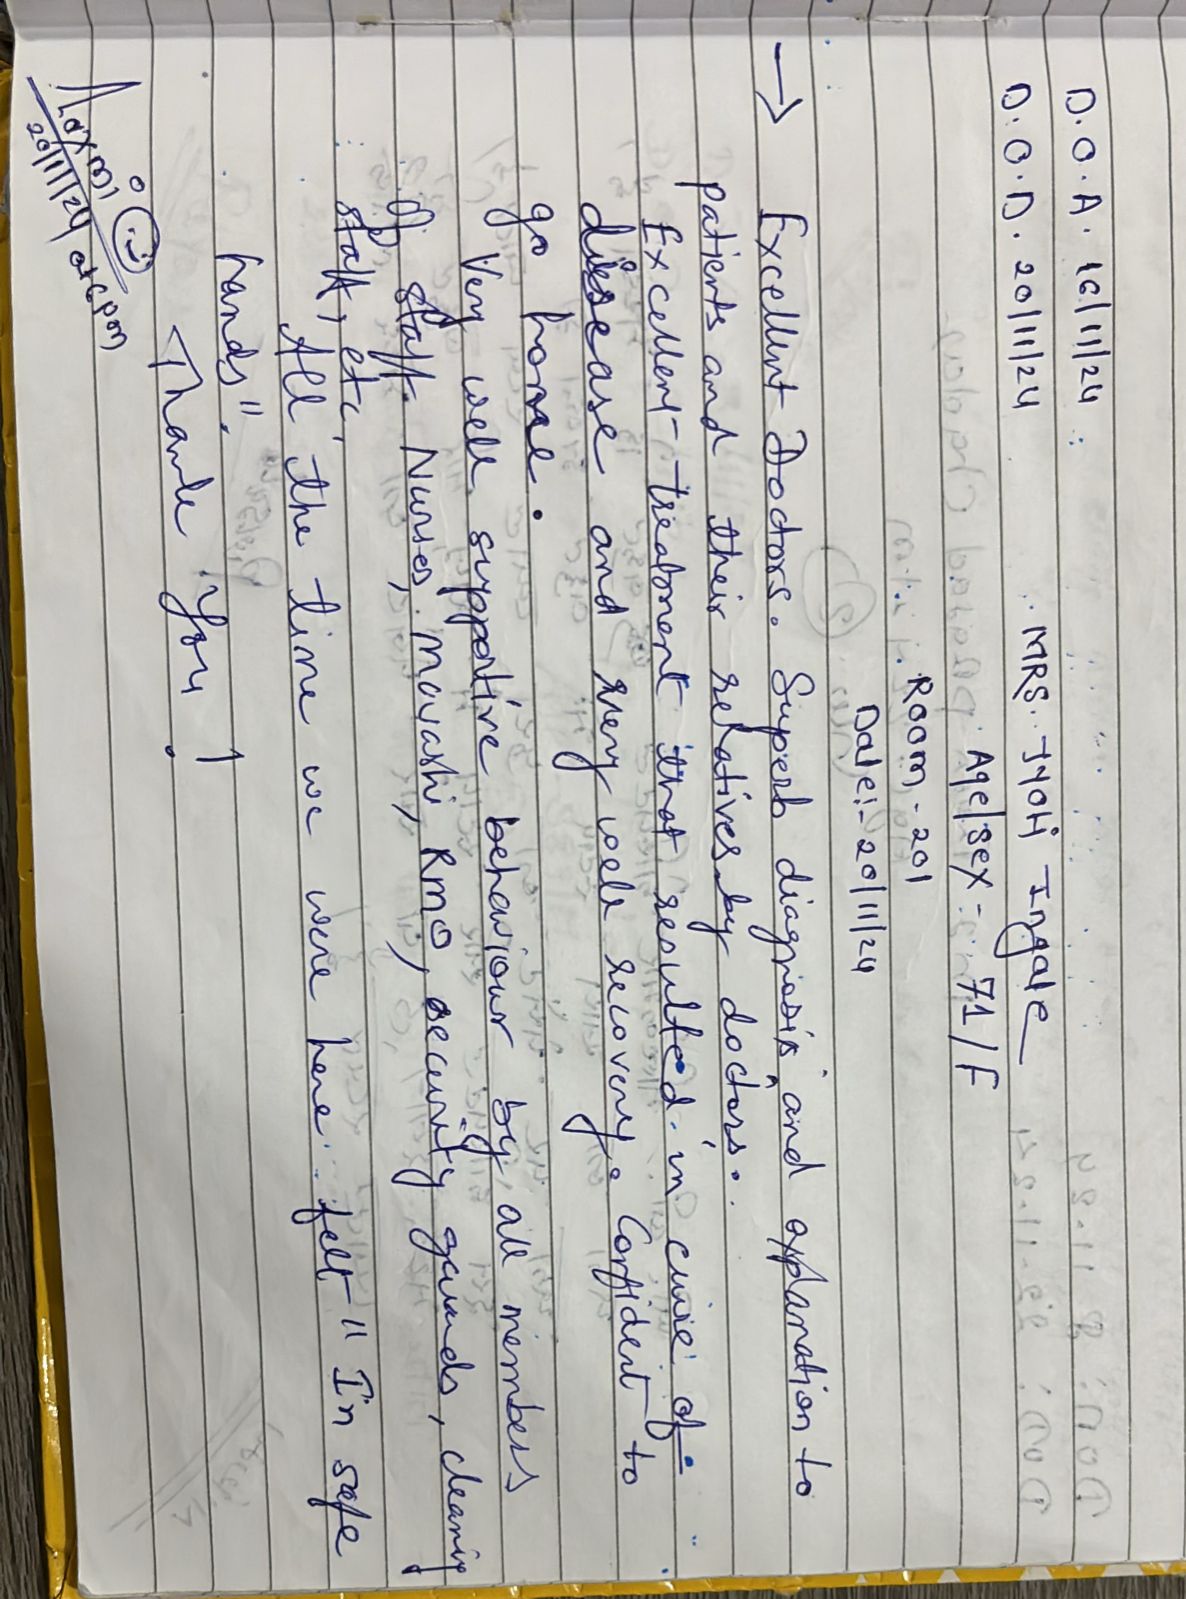 D.O.A. 16/11/24
D.O.D. 20/11/24
MRS. JYOTI Ingale
Age/Sex - 71/F
Room - 201
Date:- 20/11/24
→ Excellent Doctors. Superb diagnosis, and explanation to
patients and their relatives by doctors.
Excellent treatment that resulted in cure of
disease and very well recovery. Confident to
go home.
Very well supportive behaviour by all members
of staff. Nurses, Mavashi, RMO, security guards, cleaning
staff, etc.
All the time we were here felt "In safe
hands".
Thank you !
Laxmi
20/11/24